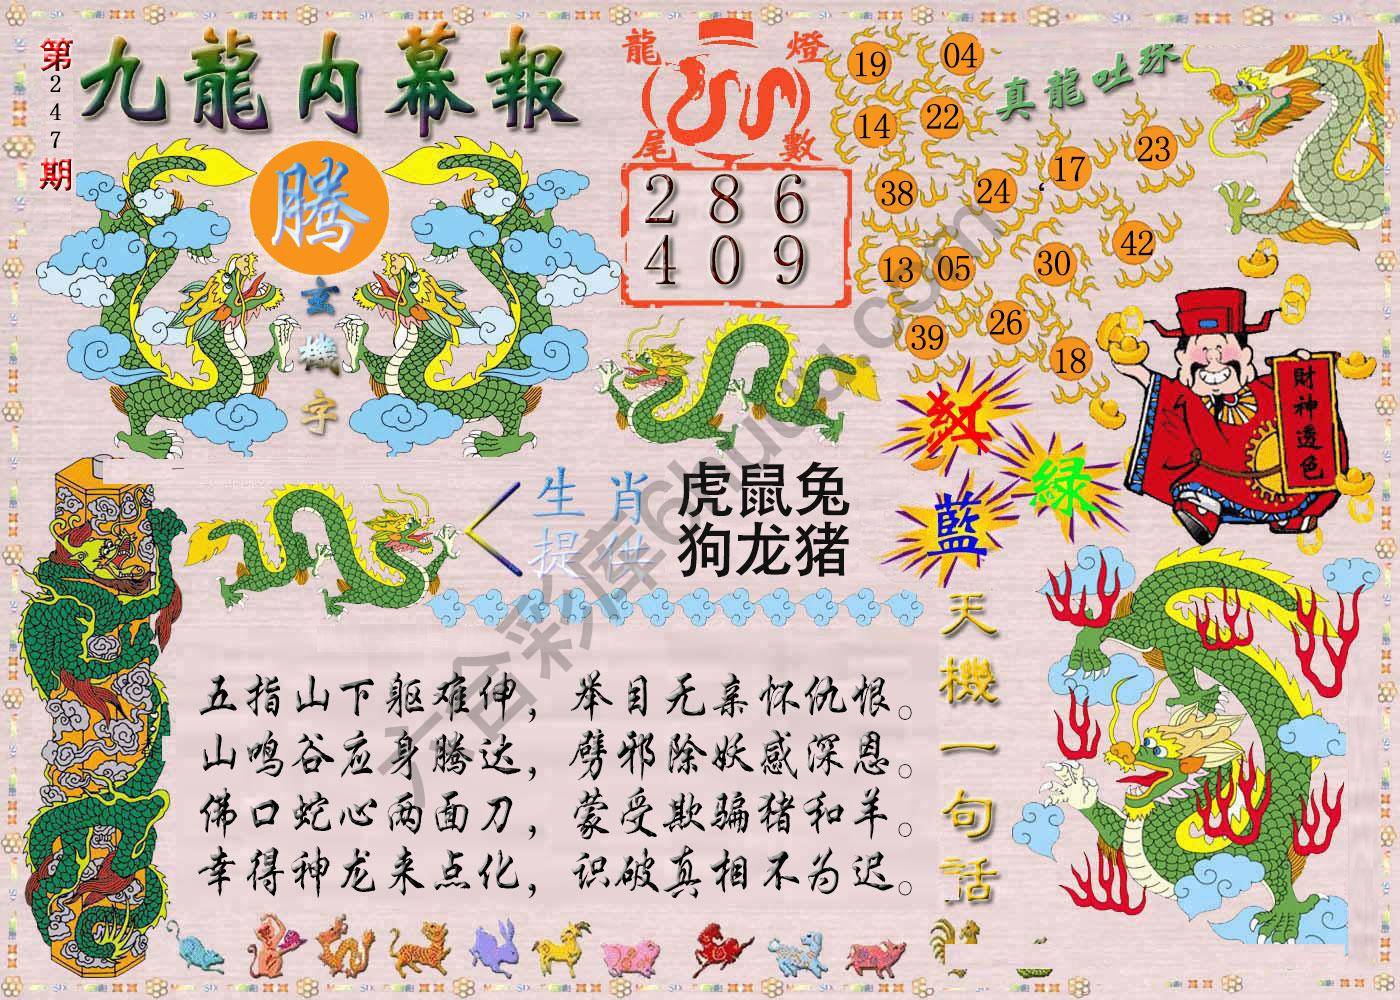 第247期
九龍内幕報
騰
玄機字
龍燈
尾數
286
409
真龍吐珠
19 04
14 22
38 24 17 23
13 05 30 42
39 26 18
財神透色
紅
綠
藍
生肖
提供
虎鼠兔
狗龙猪
五指山下躯难伸，举目无亲怀仇恨。
山鸣谷应身腾达，劈邪除妖感深恩。
佛口蛇心两面刀，蒙受欺骗猪和羊。
幸得神龙来点化，识破真相不为迟。
天機一句話
六合彩库6huuu.com